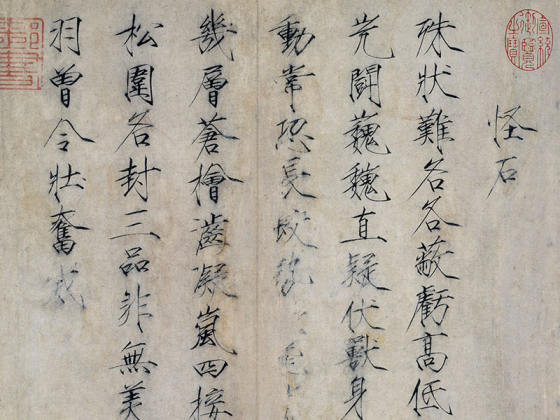 怪石
殊狀難名各蔽虧高低
尤闘巍巍直疑伏獸身
動常恐長蛟
幾層蒼檜凝嵐四接
松圍名封三品非無美
羽曾令壯奮